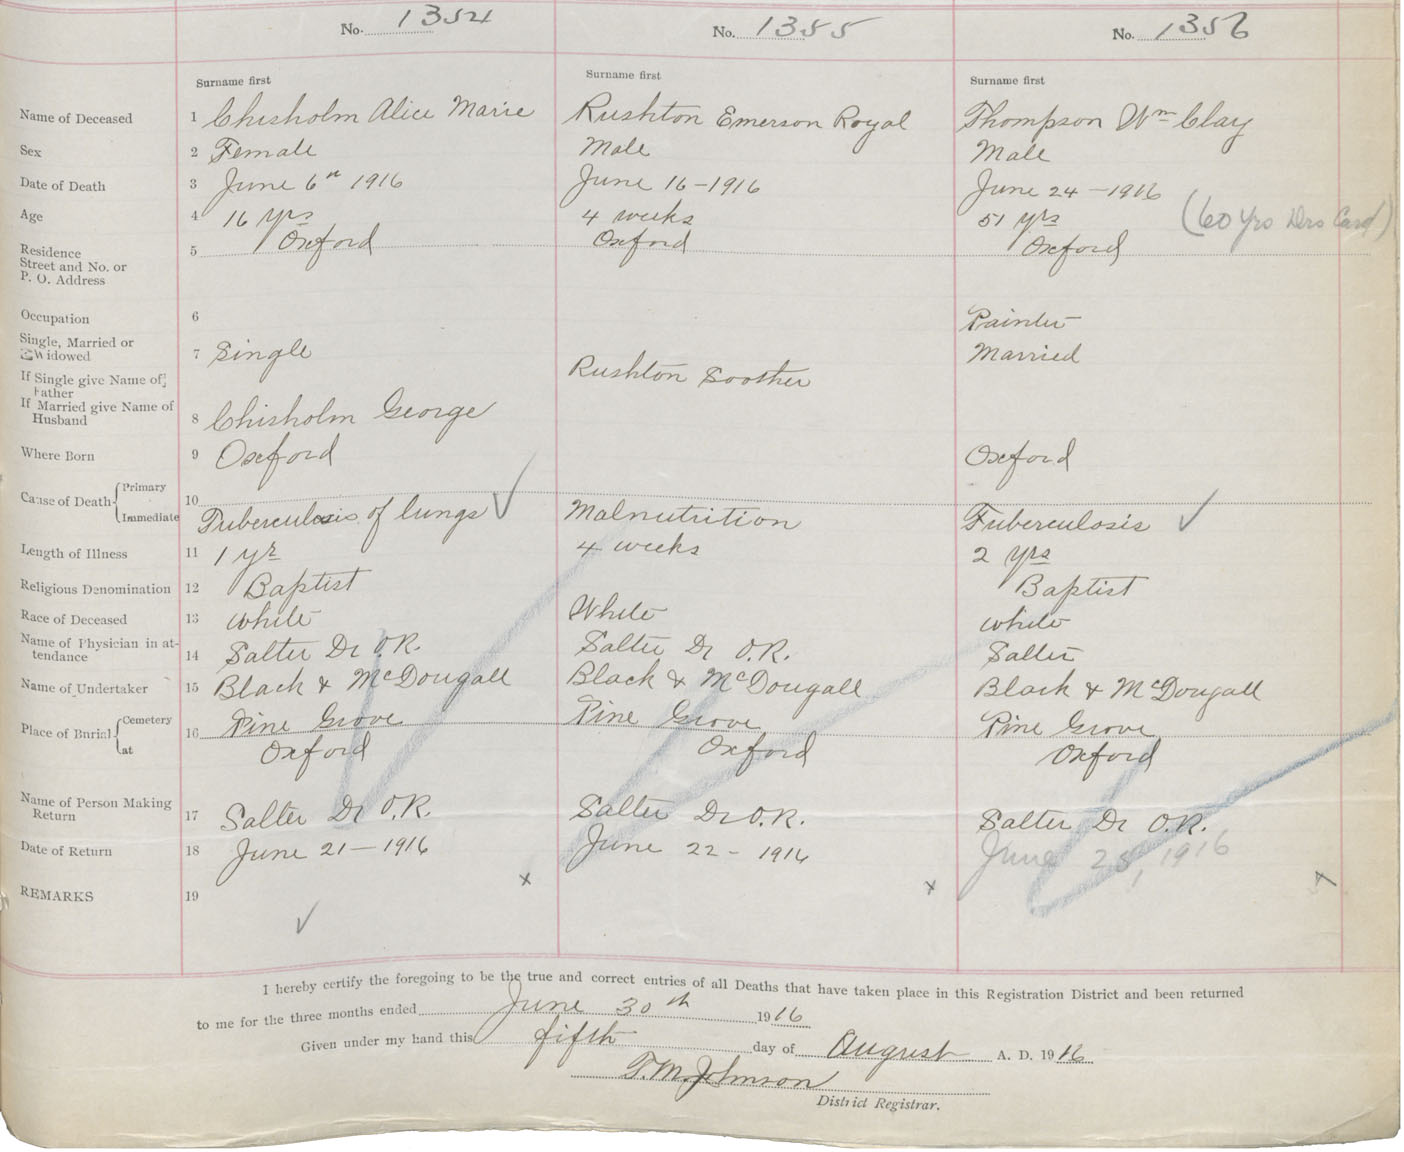 No. 1354 No. 1355 No. 1356
Surname first Surname first Surname first
Name of Deceased 1 Chisholm Alice Marie Rushton Emerson Royal Thompson Wm Clay
Sex 2 Female Male Male
Date of Death 3 June 6th 1916 June 16-1916 June 24-1916
Age 4 16 yrs 4 weeks 51 yrs (60 yrs Drs Card)
Residence 5 Oxford Oxford Oxford
Street and No. or
P. O. Address
Occupation 6 Painter
Single, Married or
Widowed 7 Single Married
If Single give Name of Rushton Soother
Father
If Married give Name of
Husband 8 Chisholm George
Where Born 9 Oxford Oxford
Cause of Death { Primary 10
Immediate Tuberculosis of lungs ✓ Malnutrition Tuberculosis ✓
Length of Illness 11 1 yr 4 weeks 2 yrs
Religious Denomination 12 Baptist Baptist
Race of Deceased 13 white White white
Name of Physician in at-
tendance 14 Salter Dr O.R. Salter Dr O.R. Salter
Name of Undertaker 15 Black & McDougall Black & McDougall Black & McDougall
Place of Burial { Cemetery 16 Pine Grove Pine Grove Pine Grove
at Oxford Oxford Oxford
Name of Person Making
Return 17 Salter Dr O.R. Salter Dr O.R. Salter Dr O.R.
Date of Return 18 June 21-1916 June 22-1916 June 25, 1916
REMARKS 19
I hereby certify the foregoing to be the true and correct entries of all Deaths that have taken place in this Registration District and been returned
to me for the three months ended June 30th 1916
Given under my hand this fifth day of August A. D. 1916
T. M. Johnson
District Registrar.